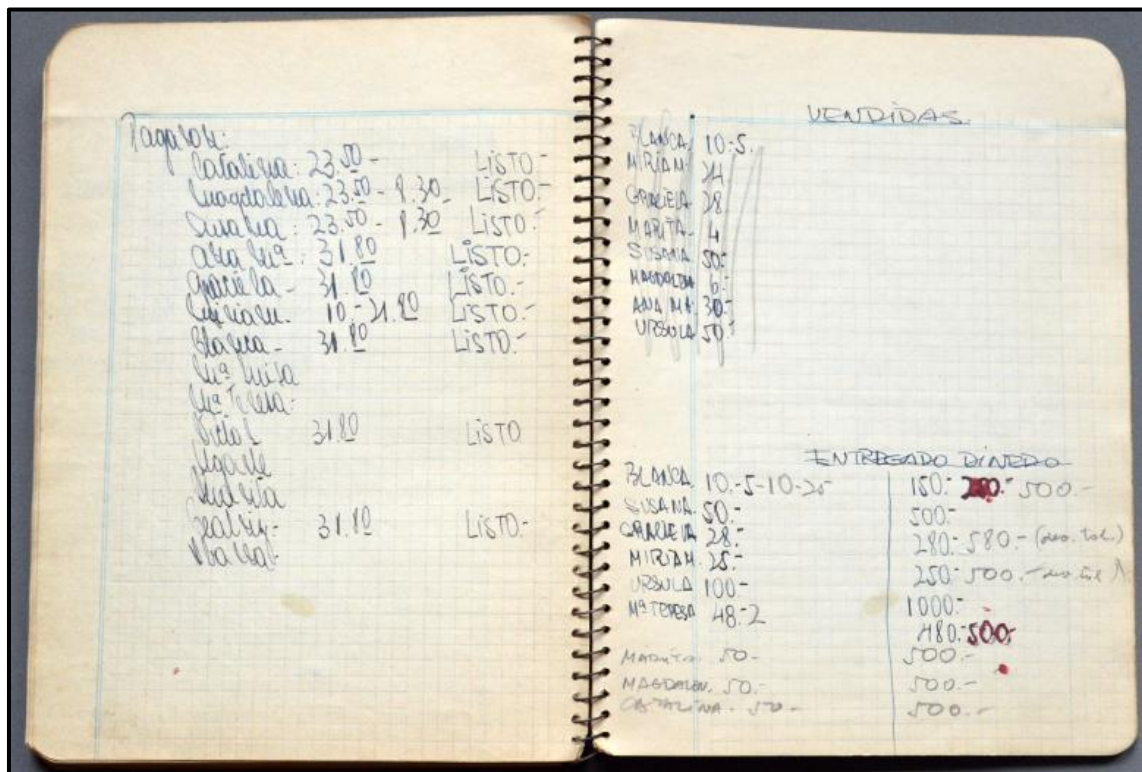 Pagaron:
Catalina: 23.50 - LISTO -
Magdalena: 23.50 - 8.30 - LISTO.-
Susana: 23.50 - 8.30 LISTO.-
Ana Mª: 31.80 LISTO.-
Graciela - 31.80 LISTO.-
Miriam. 10.- 21.80 LISTO.-
Blanca - 31.80 LISTO.-
Mª Luisa
Mª Teresa-
31.80 LISTO
Beatriz- 31.80 LISTO-
VENDIDAS
BLANCA 10-5.
MIRIAM 24
GRACIELA 28
MARITA 4
SUSANA 50-
MAGDALENA 6.-
ANA Mª. 30-
URSULA 50-
ENTREGADO DINERO
BLANCA 10.-5-10-25 150.- 500.-
SUSANA. 50.- 500.-
GRACIELA 28.- 280.- 580.-
MIRIAM. 25.- 250.- 500.-
URSULA 100.- 1000.-
Mª TERESA 48.-2 480.-500.-
MARITA. 50- 500.-
MAGDALEN. 50.- 500.-
CATALINA - 50- 500.-